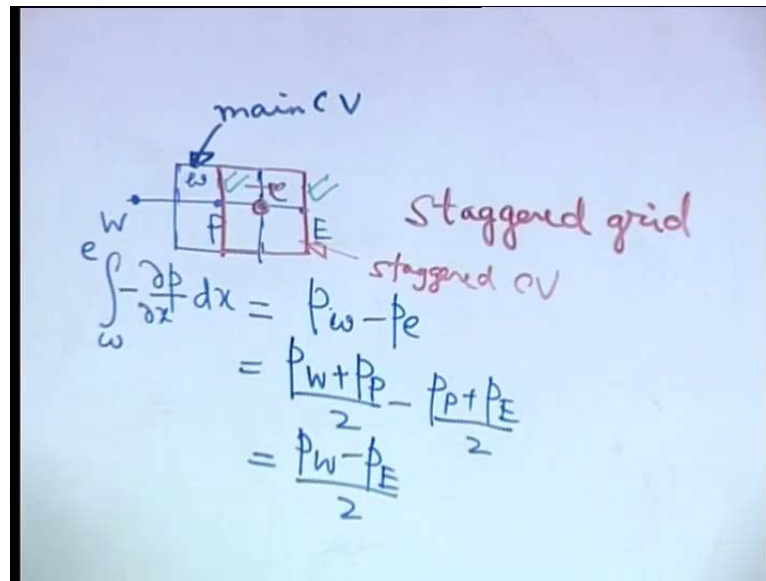 main CV
w e
W P E
Staggered grid
staggered CV
∫_w^e -∂p/∂x dx = p_w - p_e
= (p_W + p_P)/2 - (p_P + p_E)/2
= (p_W - p_E)/2